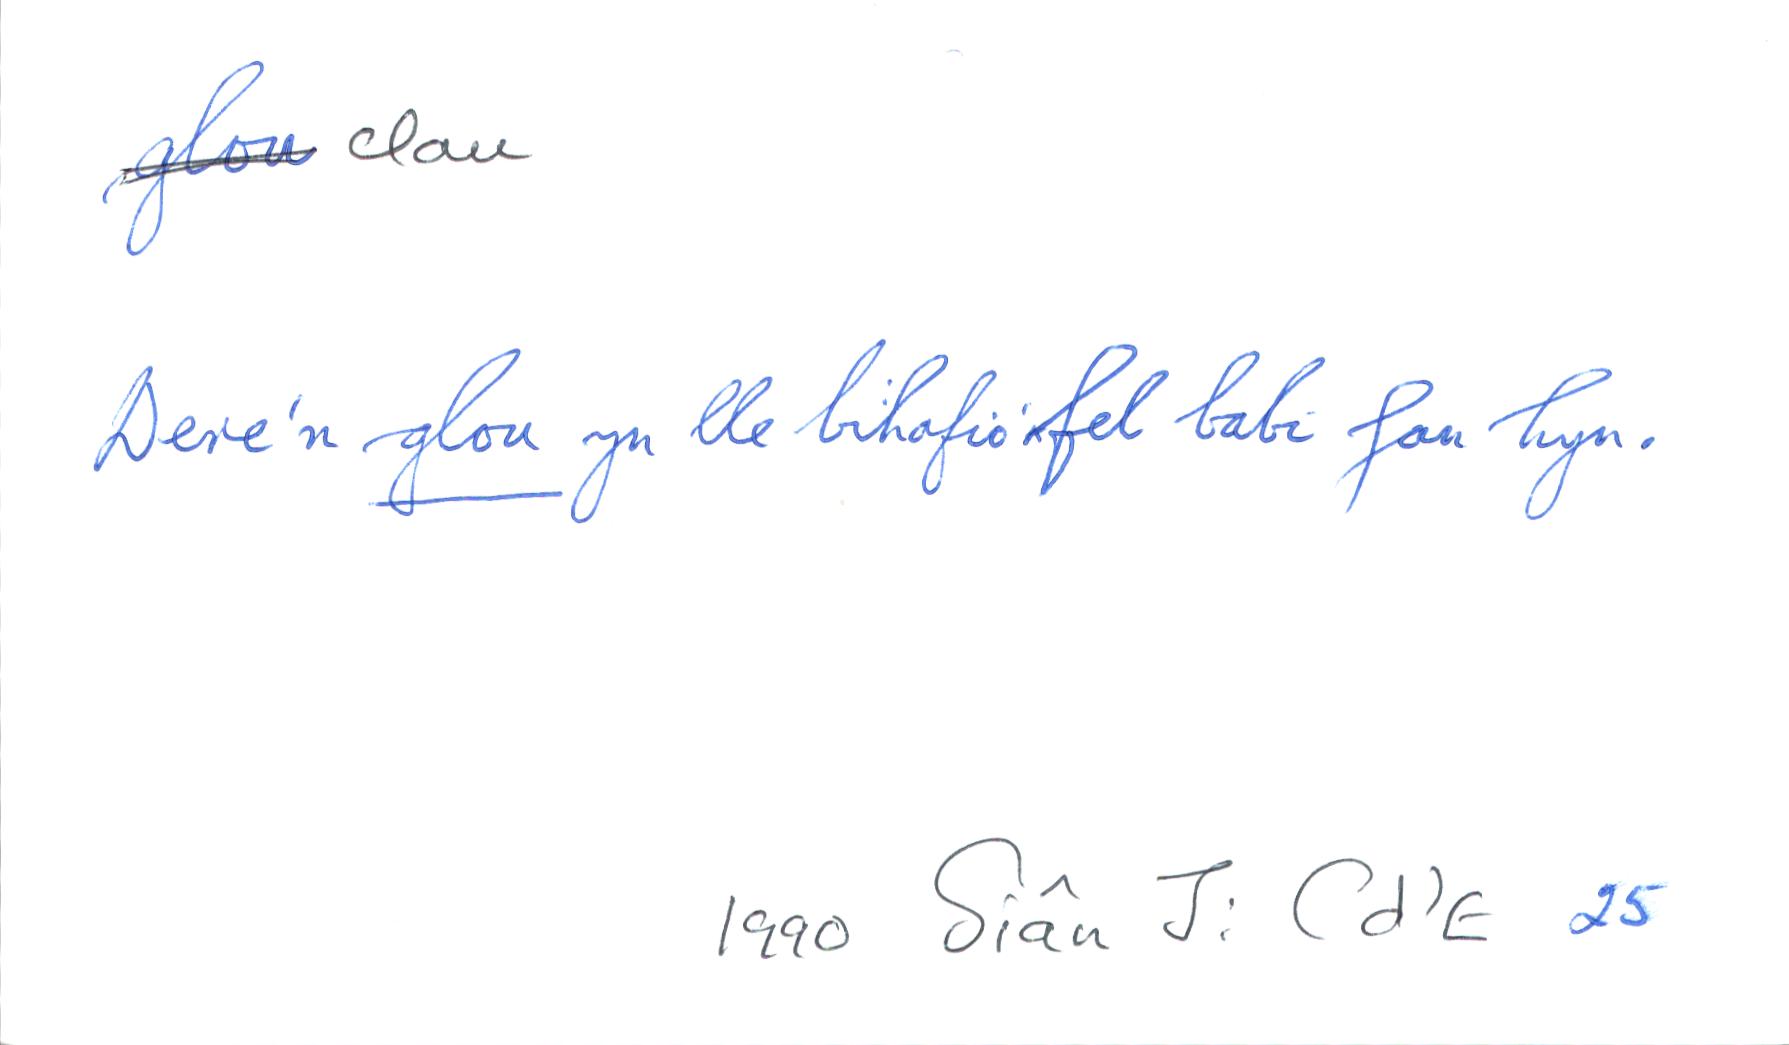 glou clau
Dere'n glou yn lle bihafio fel babi fan hyn.
1990 Siân J: Cd'E 25